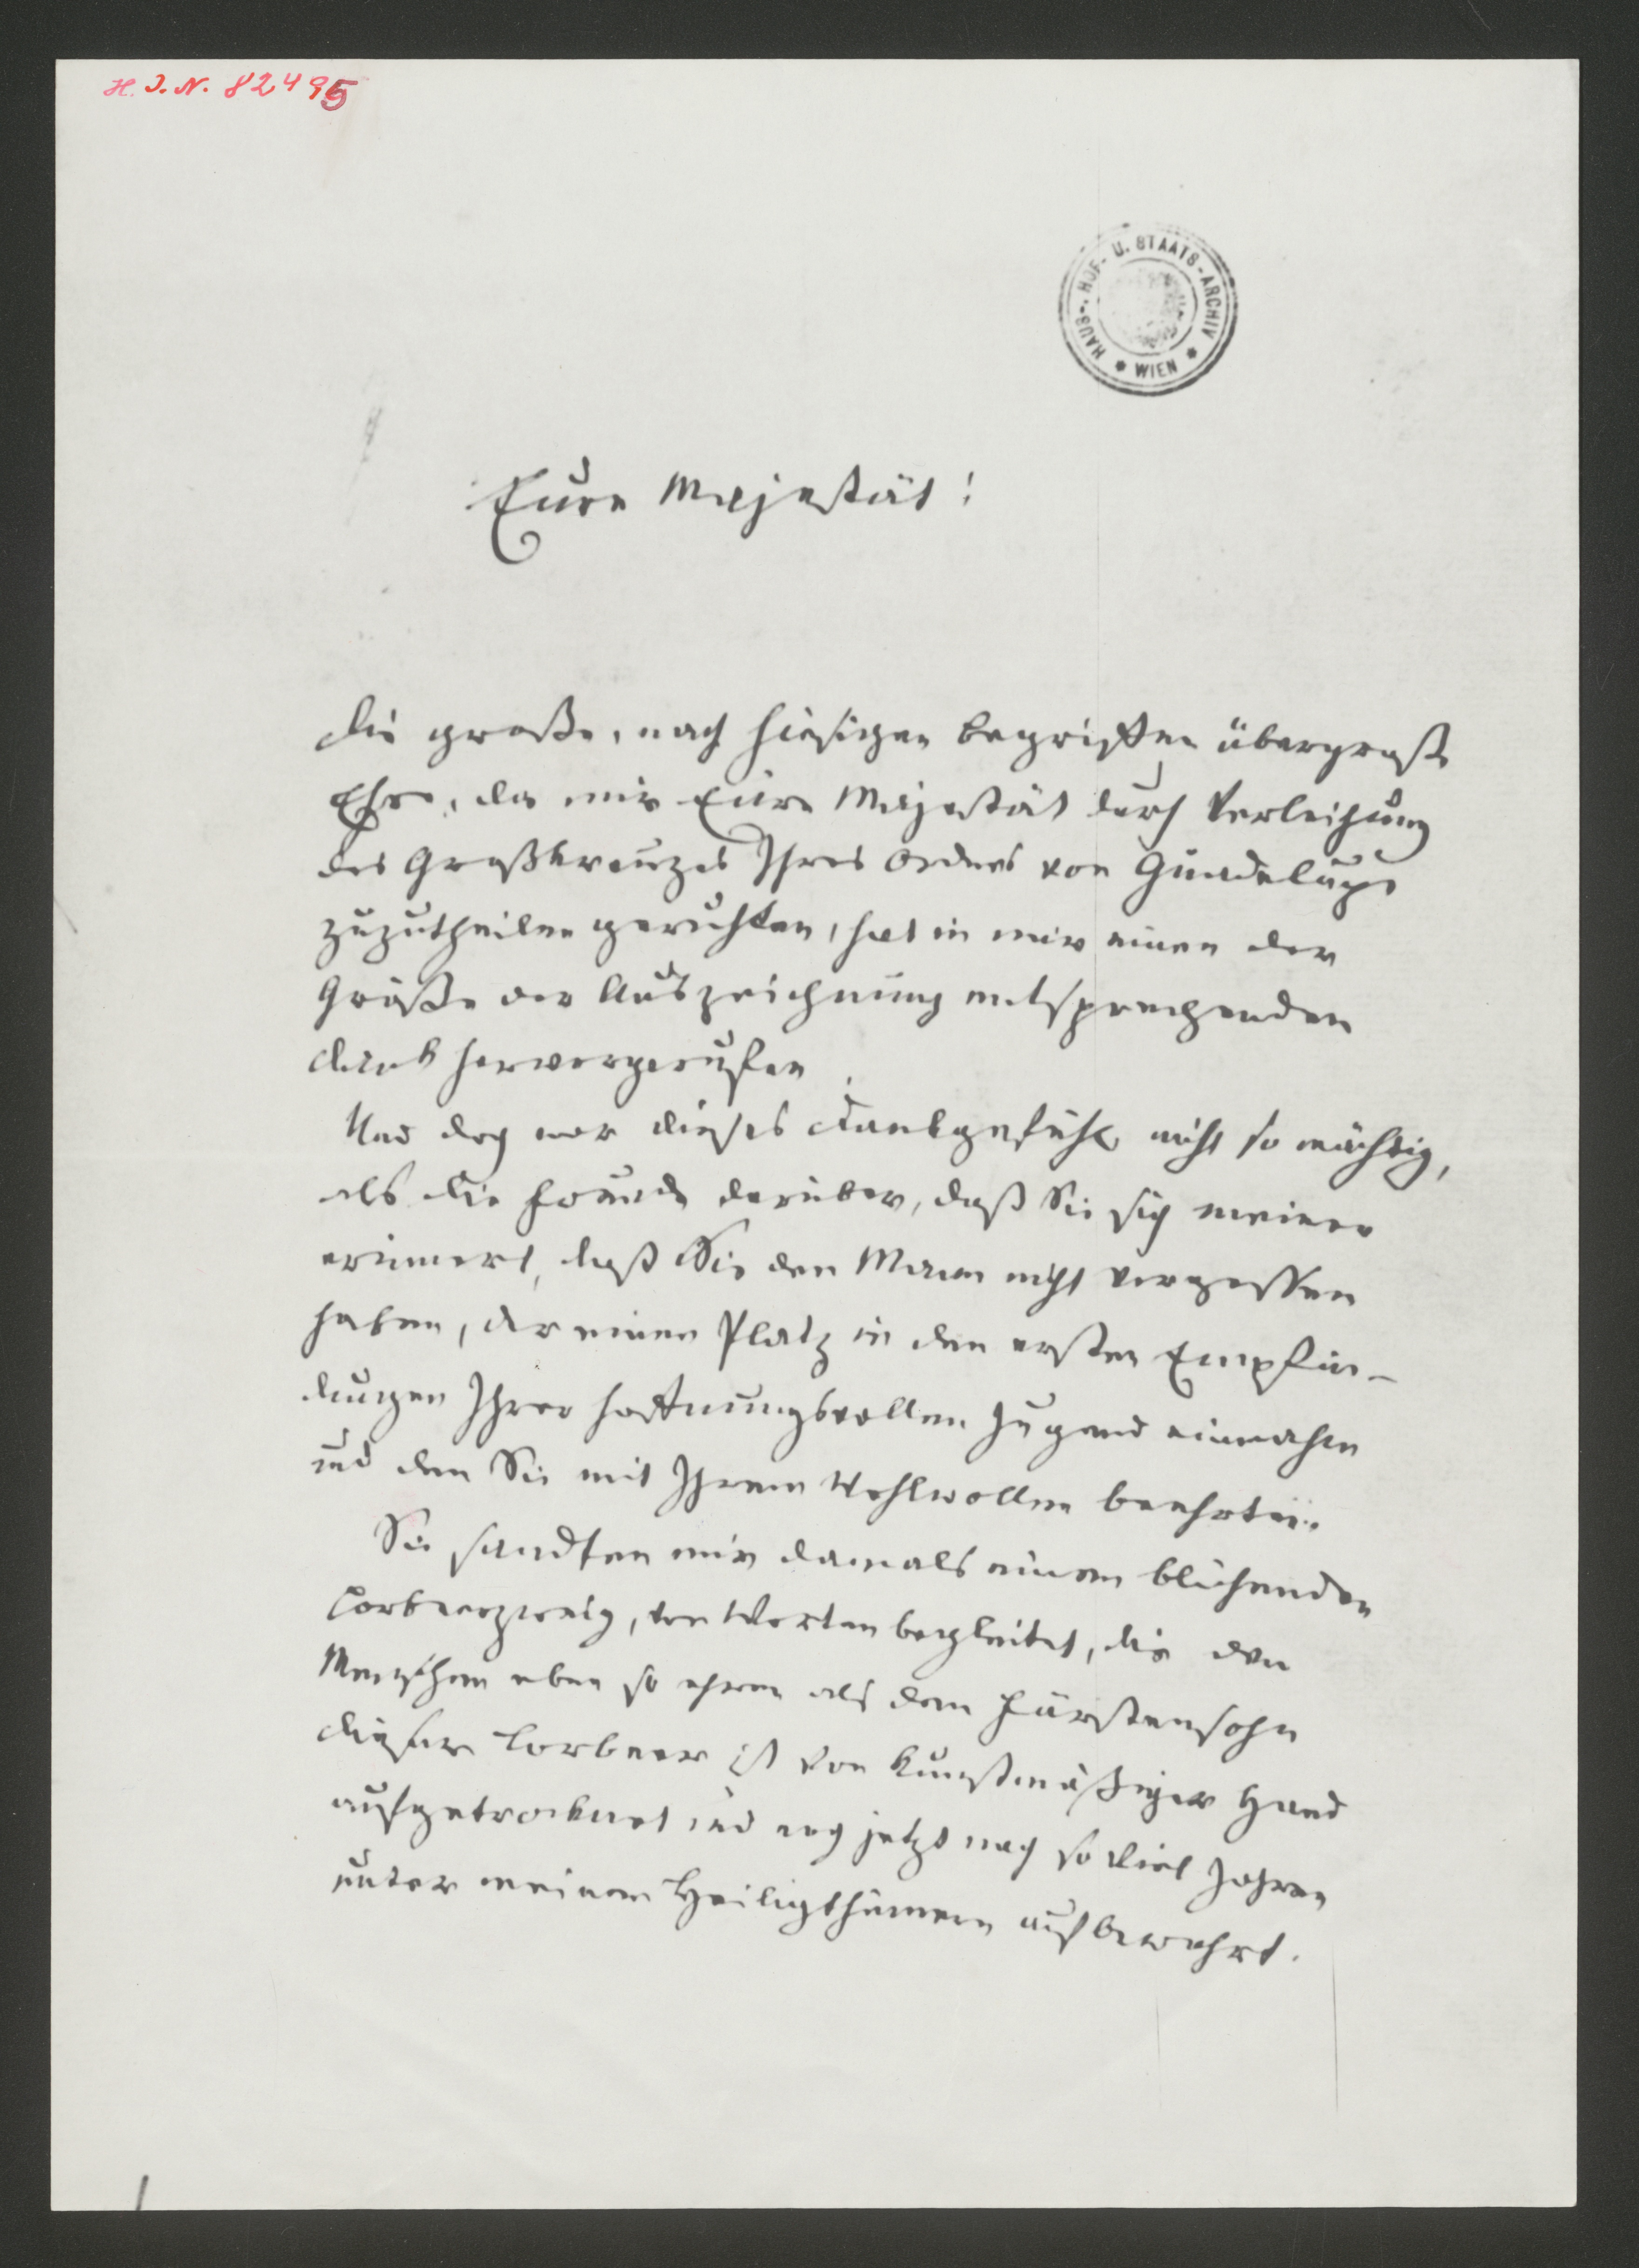 H. I. N. 82495
HAUS-, HOF- U. STAATS-ARCHIV
* WIEN *
Eure Majestät!
Die große, nach hiesigen Begriffen übergroße
Ehre, die mir Eure Majestät durch Verleihung
des Großkreuzes Ihres Ordens von Guadelupe
zuzutheilen geruhten, hat in mir einen der
Größe der Auszeichnung entsprechenden
Dank hervorgerufen.
Und doch war dieses Dankgefühl nicht so mächtig,
als die Freude darüber, daß Sie sich meiner
erinnert, daß Sie den Mann nicht vergessen
haben, der einen Platz in den ersten Empfin-
dungen Ihrer hoffnungsvollen Jugend einnahm
und den Sie mit Ihrem Wohlwollen beehrten.
Sie sandten mir damals einen blühenden
Lorbeerzweig, von Worten begleitet, die den
Menschen eben so ehren als den Fürstensohn
Dieser Lorbeer ist von kunstmäßiger Hand
aufgetrocknet und noch jetzt nach so viel Jahren
unter meinen Heiligthümern aufbewahrt.